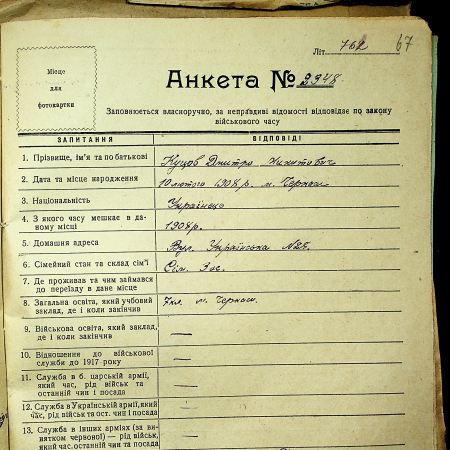 Літ 762 67
Місце
для
фотокартки
Анкета № 2948
Заповнюється власноручно, за неправдиві відомості відповідає по закону
військового часу
ЗАПИТАННЯ ВІДПОВІДІ
1. Прізвище, ім'я та по батькові Куцов Дмитро Микитович
2. Дата та місце народження 10 лютого 1908 р. м. Черкаси
3. Національність Українець
4. З якого часу мешкає в да-
ному місці 1908 р.
5. Домашня адреса Вул. Українська №
6. Сімейний стан та склад сім'ї
7. Де проживав та чим займався
до переїзду в дане місце
8. Загальна освіта, який учбовий
заклад, де і коли закінчив 7 кл. м. Черкаси
9. Військова освіта, який заклад,
де і коли закінчив —
10. Відношення до військової
служби до 1917 року —
11. Служба в б. царській армії,
який час, рід військ та
останній чин і посада —
12. Служба в Українській армії, який
час, рід військ та ост. чин і посада —
13. Служба в інших арміях (за ви-
нятком червоної) — рід військ,
який час, останній чин та посада —